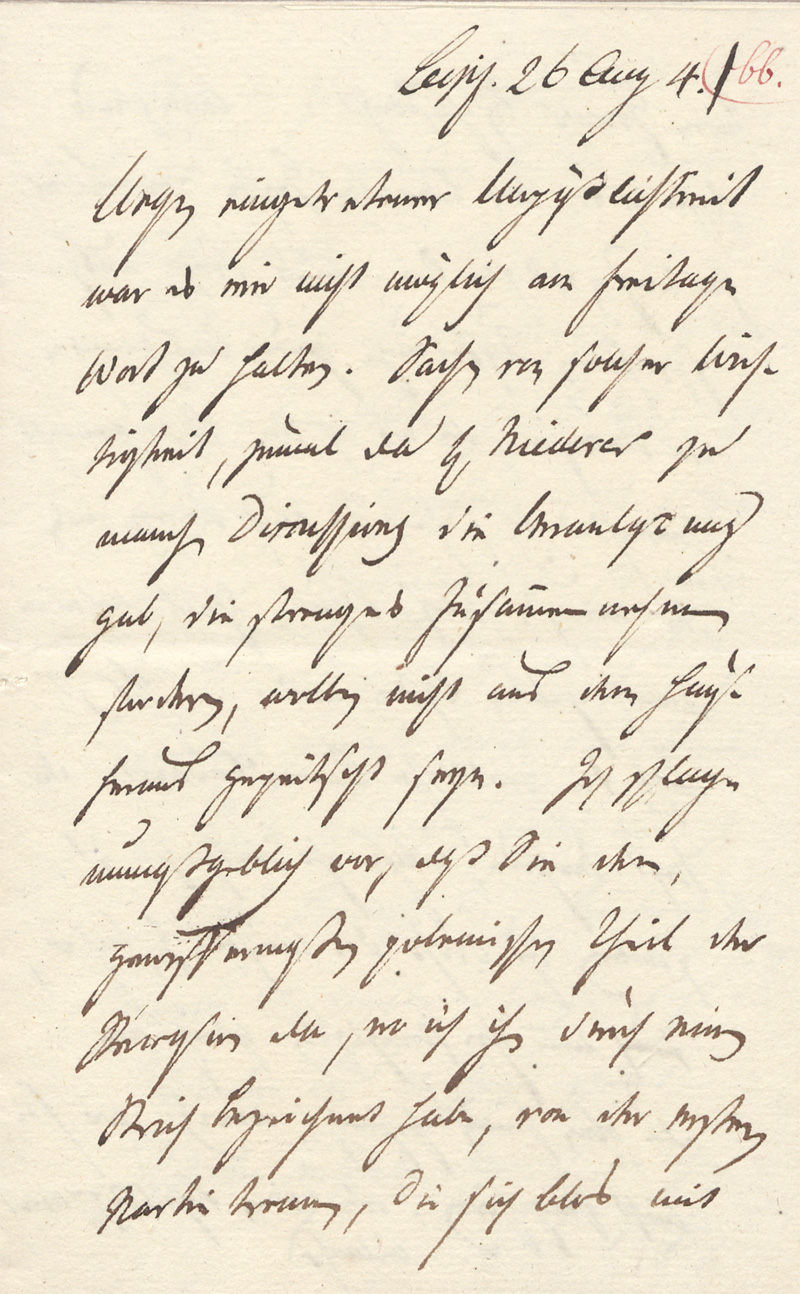 Leipz. 26 Aug 4. | 66.
Wegen eingetretener Unpäßlichkeit
war es mir nicht möglich am Freitage
Wort zu halten. Sachen von solcher Wich-
tigkeit, zumal da H. Niederer zu
manch. Discussionen die Veranlassung
gab, die strenges Zusammennehmen
fordern, wollen nicht aus dem Hause
heraus gepeitscht seyn. Ich schlage
unmaßgeblich vor, daß Sie den,
gewissermaßen polemischen Theil der
Recension da, wo ich ihn durch einen
Strich bezeichnet habe, von der ersten
Partie trennen, die sich blos mit